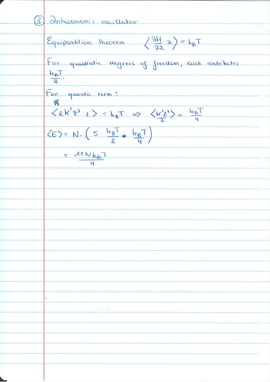 ③ Anharmonic oscillator
Equipartition theorem ⟨∂H/∂x x⟩ = k_B T
For quadratic degrees of freedom, each contributes
k_B T/2.
For quartic term:
⟨2k'z³·z⟩ = k_B T ⇒ ⟨k'z⁴/2⟩ = k_B T/4
⟨E⟩ = N·(5·k_B T/2 + k_B T/4)
= 11Nk_B T/4